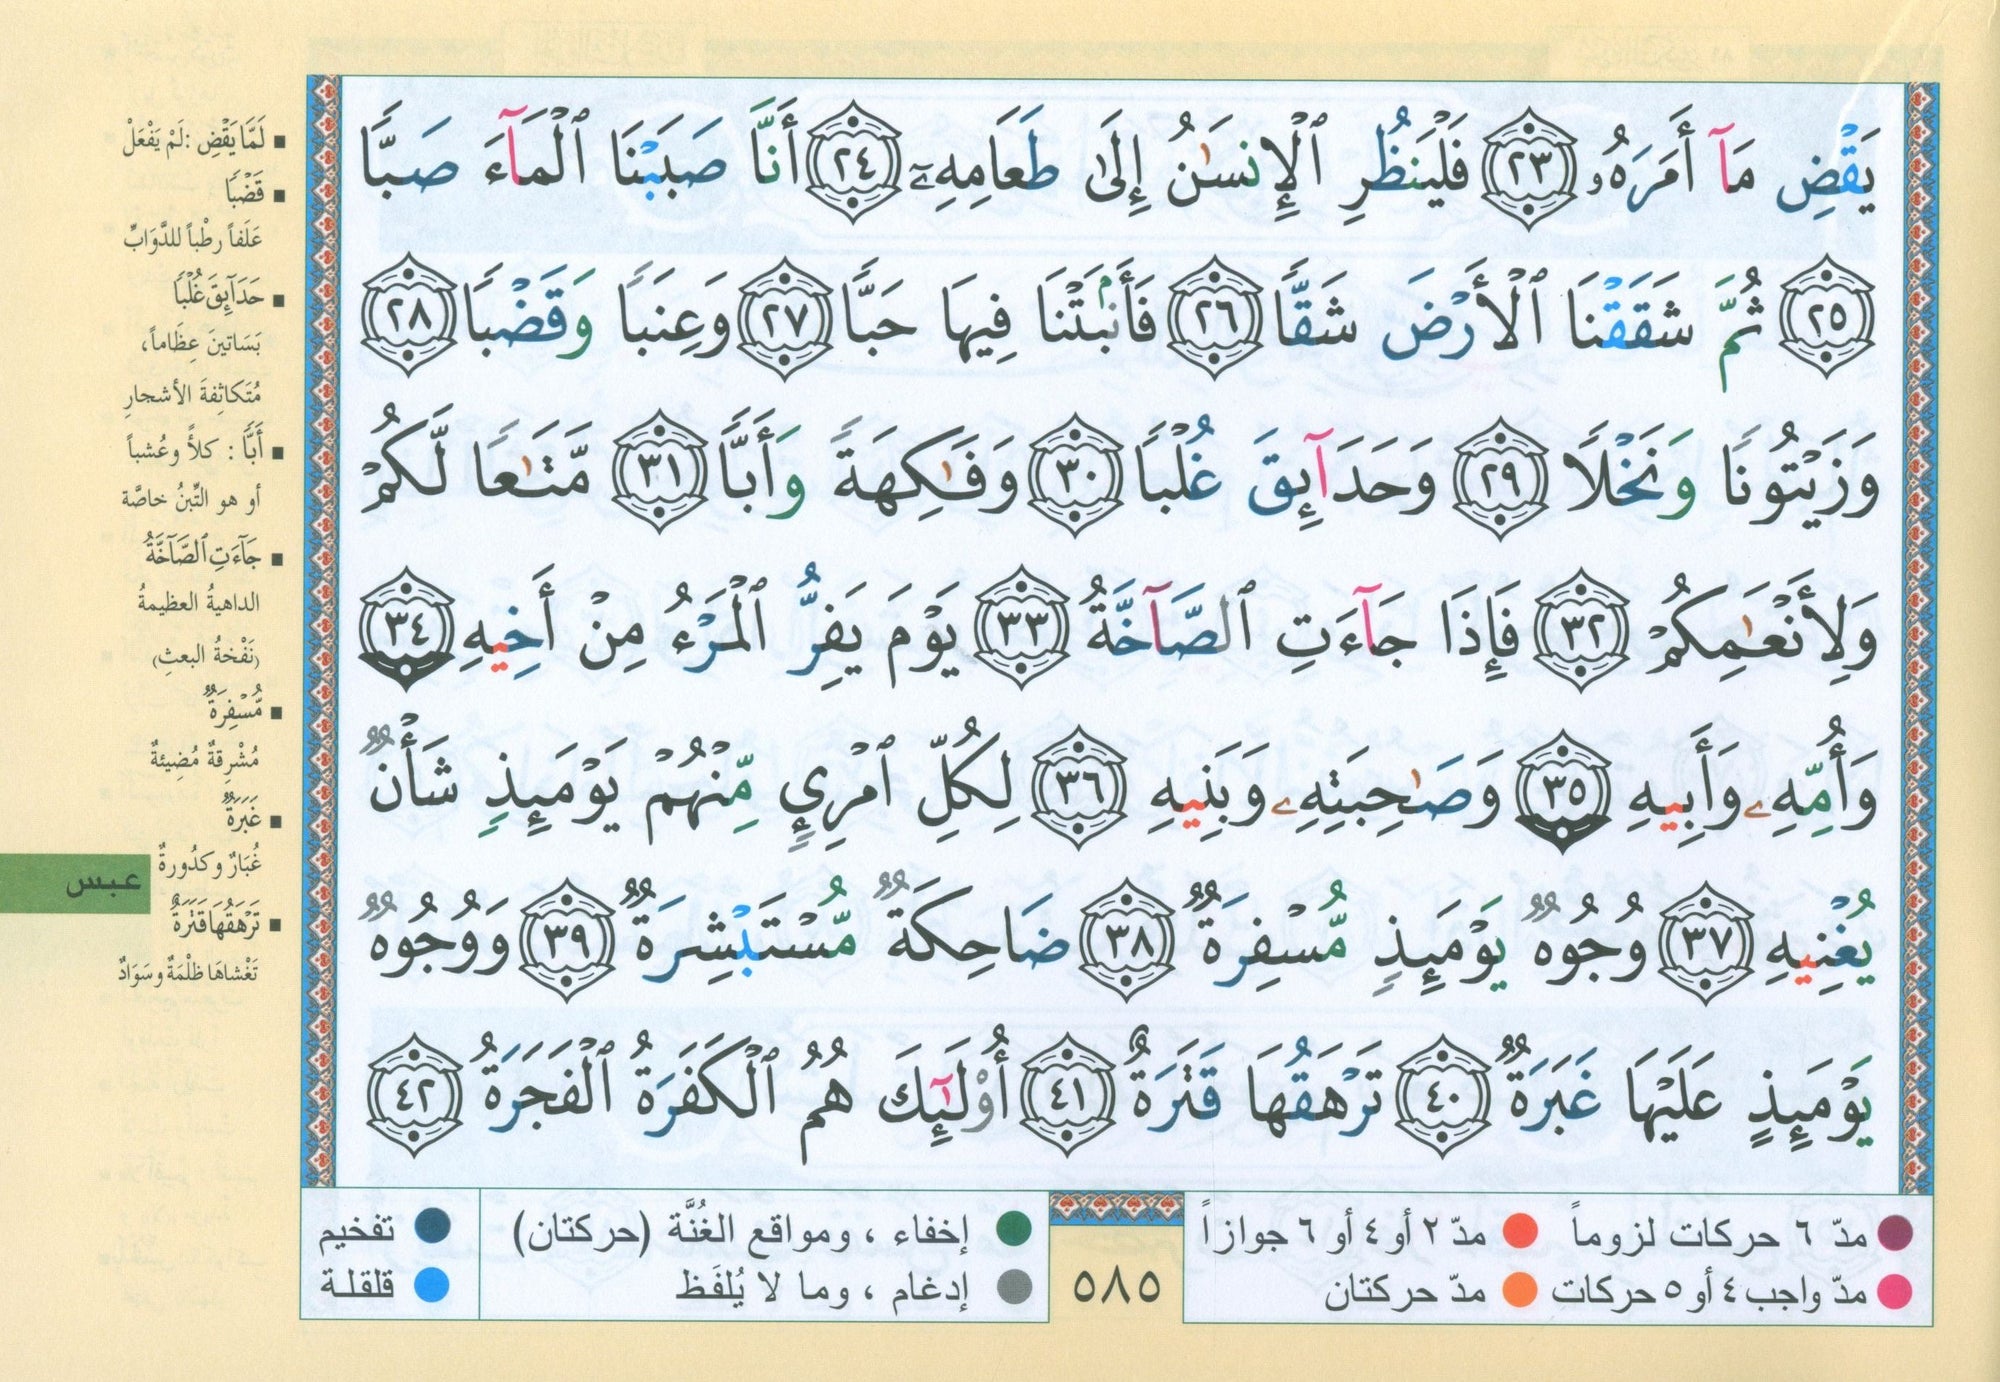 يَقْضِ مَآ أَمَرَهُۥ ٢٣ فَلْيَنظُرِ ٱلْإِنسَٰنُ إِلَىٰ طَعَامِهِۦٓ ٢٤ أَنَّا صَبَبْنَا ٱلْمَآءَ صَبًّا
٢٥ ثُمَّ شَقَقْنَا ٱلْأَرْضَ شَقًّا ٢٦ فَأَنۢبَتْنَا فِيهَا حَبًّا ٢٧ وَعِنَبًا وَقَضْبًا ٢٨
وَزَيْتُونًا وَنَخْلًا ٢٩ وَحَدَآئِقَ غُلْبًا ٣٠ وَفَٰكِهَةً وَأَبًّا ٣١ مَّتَٰعًا لَّكُمْ
وَلِأَنْعَٰمِكُمْ ٣٢ فَإِذَا جَآءَتِ ٱلصَّآخَّةُ ٣٣ يَوْمَ يَفِرُّ ٱلْمَرْءُ مِنْ أَخِيهِ ٣٤
وَأُمِّهِۦ وَأَبِيهِ ٣٥ وَصَٰحِبَتِهِۦ وَبَنِيهِ ٣٦ لِكُلِّ ٱمْرِئٍ مِّنْهُمْ يَوْمَئِذٍ شَأْنٌ
يُغْنِيهِ ٣٧ وُجُوهٌ يَوْمَئِذٍ مُّسْفِرَةٌ ٣٨ ضَاحِكَةٌ مُّسْتَبْشِرَةٌ ٣٩ وَوُجُوهٌ
يَوْمَئِذٍ عَلَيْهَا غَبَرَةٌ ٤٠ تَرْهَقُهَا قَتَرَةٌ ٤١ أُوْلَٰٓئِكَ هُمُ ٱلْكَفَرَةُ ٱلْفَجَرَةُ ٤٢
■ لَمَّا يَقْضِ: لَمْ يَفْعَلْ
■ قَضْبًا
عَلَفاً رطْباً للدَّوَابِّ
■ حَدَآئِقَ غُلْبًا
بَسَاتينَ عِظَاماً،
مُتَكاثِفةَ الأشجارِ
■ أَبًّا : كلأً وعُشباً
أو هو التِّبنُ خاصَّة
■ جَآءَتِ ٱلصَّآخَّةُ
الداهيةُ العظيمةُ
(نَفْخةُ البعثِ)
■ مُّسْفِرَةٌ
مُشْرِقةٌ مُضِيئةٌ
■ غَبَرَةٌ
غُبَارٌ وكدُورةٌ
■ تَرْهَقُهَا قَتَرَةٌ
تَغْشاهَا ظلْمَةٌ وسَوَادٌ
عبس
مدّ ٦ حركات لزوماً مدّ ٢ أو ٤ أو ٦ جوازاً
مدّ واجب ٤ أو ٥ حركات مدّ حركتان
٥٨٥
إخفاء ، ومواقع الغُنَّة (حركتان)
إدغام ، وما لا يُلفَظ
تفخيم
قلقلة